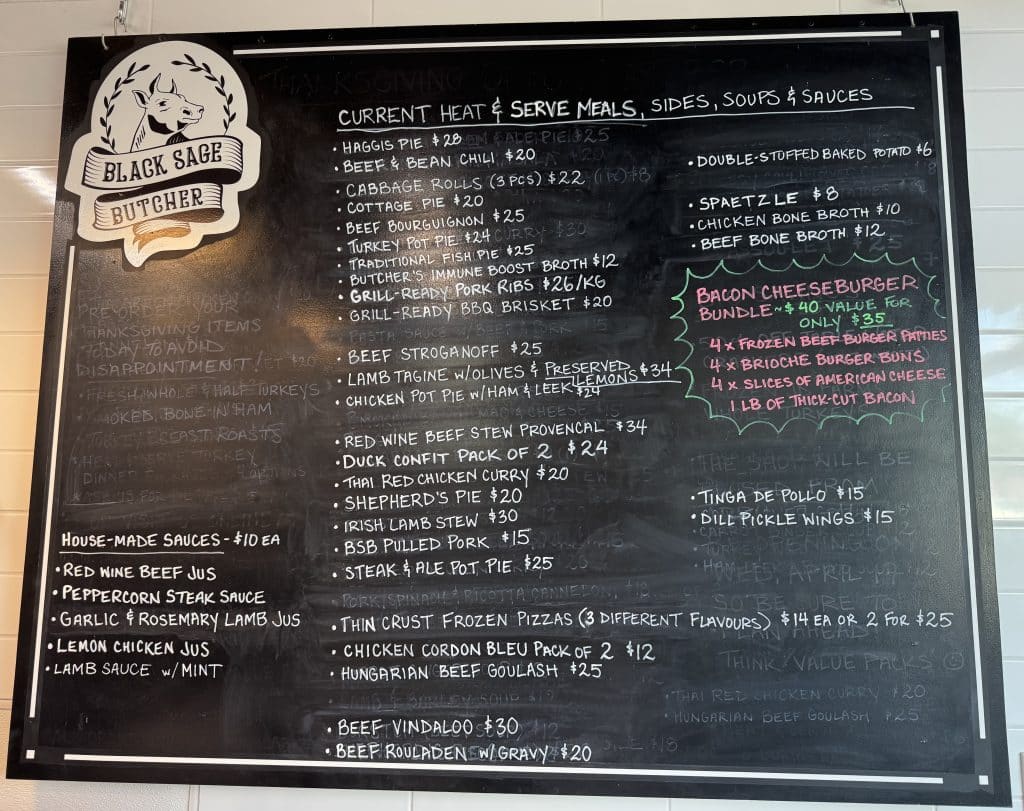 BLACK SAGE
BUTCHER
CURRENT HEAT & SERVE MEALS, SIDES, SOUPS & SAUCES
• HAGGIS PIE $28
• BEEF & BEAN CHILI $20
• CABBAGE ROLLS (3 PCS) $22
• COTTAGE PIE $20
• BEEF BOURGUIGNON $25
• TURKEY POT PIE $24
• TRADITIONAL FISH PIE $25
• BUTCHER'S IMMUNE BOOST BROTH $12
• GRILL-READY PORK RIBS $26/KG
• GRILL-READY BBQ BRISKET $20
• BEEF STROGANOFF $25
• LAMB TAGINE W/OLIVES & PRESERVED LEMONS $34
• CHICKEN POT PIE W/HAM & LEEK $24
• RED WINE BEEF STEW PROVENCAL $34
• DUCK CONFIT PACK OF 2 $24
• THAI RED CHICKEN CURRY $20
• SHEPHERD'S PIE $20
• IRISH LAMB STEW $30
• BSB PULLED PORK $15
• STEAK & ALE POT PIE $25
• THIN CRUST FROZEN PIZZAS (3 DIFFERENT FLAVOURS) $14 EA OR 2 FOR $25
• CHICKEN CORDON BLEU PACK OF 2 $12
• HUNGARIAN BEEF GOULASH $25
• BEEF VINDALOO $30
• BEEF ROULADEN W/GRAVY $20
• DOUBLE-STUFFED BAKED POTATO $6
• SPAETZLE $8
• CHICKEN BONE BROTH $10
• BEEF BONE BROTH $12
BACON CHEESEBURGER
BUNDLE ~ $40 VALUE FOR
ONLY $35
4 x FROZEN BEEF BURGER PATTIES
4 x BRIOCHE BURGER BUNS
4 x SLICES OF AMERICAN CHEESE
1 LB OF THICK-CUT BACON
• TINGA DE POLLO $15
• DILL PICKLE WINGS $15
THINK VALUE PACKS
• THAI RED CHICKEN CURRY $20
• HUNGARIAN BEEF GOULASH $25
PRE-ORDER YOUR
THANKSGIVING ITEMS
TODAY TO AVOID
DISAPPOINTMENT!
• FRESH WHOLE & HALF TURKEYS
SMOKED, BONE-IN HAM
HOUSE-MADE SAUCES - $10 EA
• RED WINE BEEF JUS
• PEPPERCORN STEAK SAUCE
• GARLIC & ROSEMARY LAMB JUS
• LEMON CHICKEN JUS
• LAMB SAUCE W/ MINT